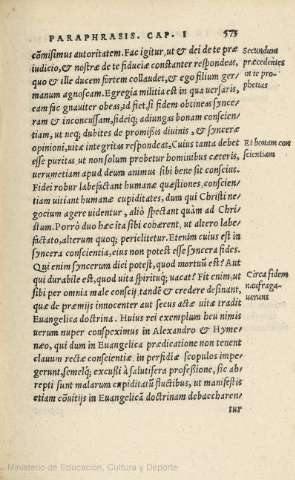 PARAPHRASIS. CAP. I 573
cōmisimus autoritatem. Fac igitur, ut & dei de te præ
iudicio, & nostræ de te fiduciæ constanter respondeas,
quo & ille ducem fortem collaudet, & ego filium ger-
manum agnoscam. Egregia militia est in qua uersaris,
eam fac gnauiter obeas, id fiet, si fidem obtineas syncę-
ram & inconcussam, fideiq; adiungas bonam conscien-
tiam, ut neq; dubites de promißis diuinis, & syncerę
opinioni, uitę integritas respondeat. Cuius tanta debet
esse puritas ut non solum probetur hominibus cæteris,
uerumetiam apud deum animus sibi bene sit conscius.
Fidei robur labefactant humanæ quæstiones, conscien-
tiam uitiant humanæ cupiditates, dum qui Christi ne-
gocium agere uidentur, aliò spectant quàm ad Chri-
stum. Porrò duo hæc ita sibi cohærent, ut altero labe-
factato, alterum quoq; periclitetur. Etenim cuius est in
syncera conscientia, eius non potest esse syncera fides.
Qui enim syncerum dici potest, quod mortuū est? Aut
qui durabile est, quod uita spirituq; uacat? Fit enim, ut
sibi per omnia male conscij tandē & credere desinant,
quæ de præmijs innocenter aut secus actæ uitæ tradit
Euangelica doctrina. Huius rei exemplum heu nimis
uerum nuper conspeximus in Alexandro & Hyme-
næo, qui dum in Euangelica prædicatione non tenent
clauum rectæ conscientiæ, in perfidiæ scopulos impe-
gerunt, semelq; excußi à salutifera profeßione, sic ab-
repti sunt malarum cupiditatū fluctibus, ut manifestis
etiam cōuitijs in Euangelicā doctrinam debaccharen/
tur
Secundum
præcedentes
in te pro-
phetias
Et bonam con
scientiam
Circa fidem
naufraga-
uerunt
Ministerio de Educación, Cultura y Deporte